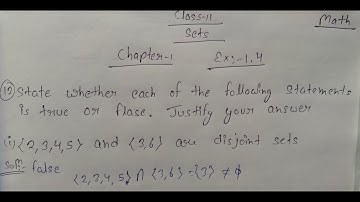 Class-11 Math
Sets
Chapter-1 Ex:-1.4
(12) State whether each of the following statements
is true or flase. Justify your answer
(i) {2,3,4,5} and {3,6} are disjoint sets
Sol:- false
{2,3,4,5} ∩ {3,6} = {3} ≠ ϕ